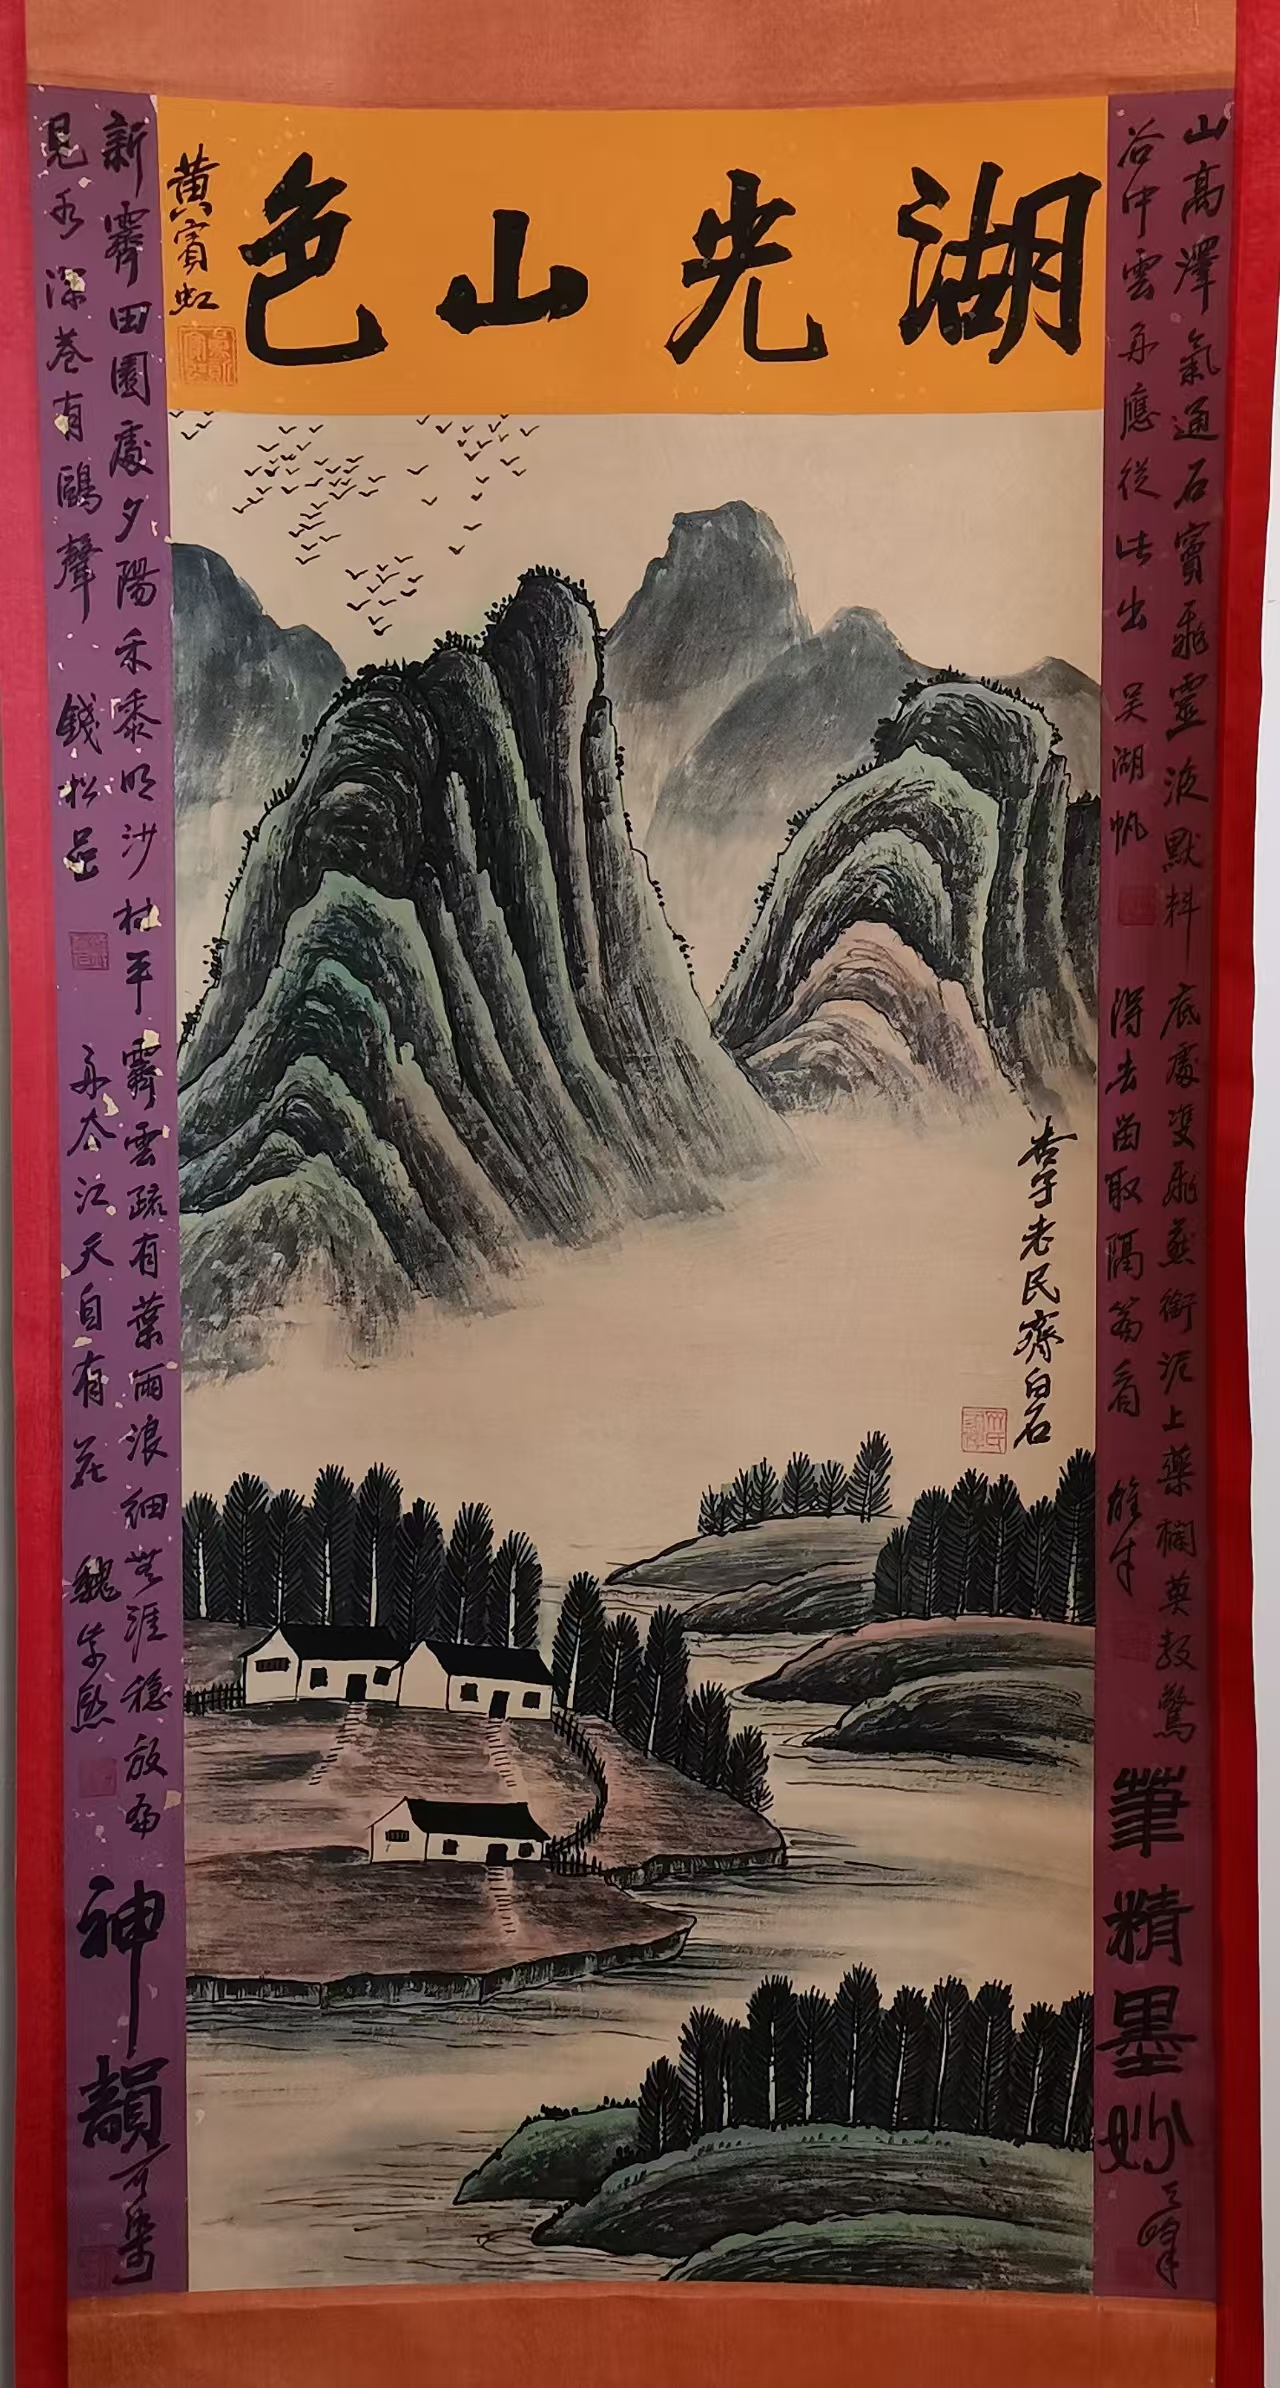 湖光山色
黄賓虹
山高澤氣通石竇飛靈液默料
谷中雲多應從此出 吴湖帆
底處雙飛燕銜泥上藥欄莫教驚
得去留取隔簾看
筆精墨妙
杏子老民齊白石
新霽田園處夕陽禾黍明沙村平
見水深巷有鷗聲 錢松喦
霽雲疏有葉雨浪細無涯穩放
江天自有 魏紫熙
神韻